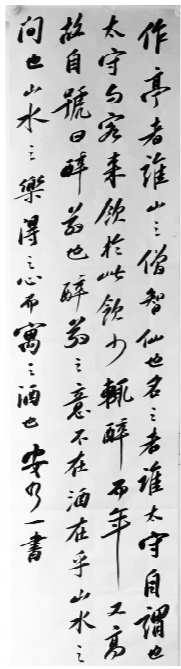 作亭者誰山之僧智仙也名之者誰太守自謂也
太守与客来飲於此飲少輒醉而年又高
故自號曰醉翁也醉翁之意不在酒在乎山水之
间也山水之樂得之心而寓之酒也 安一書